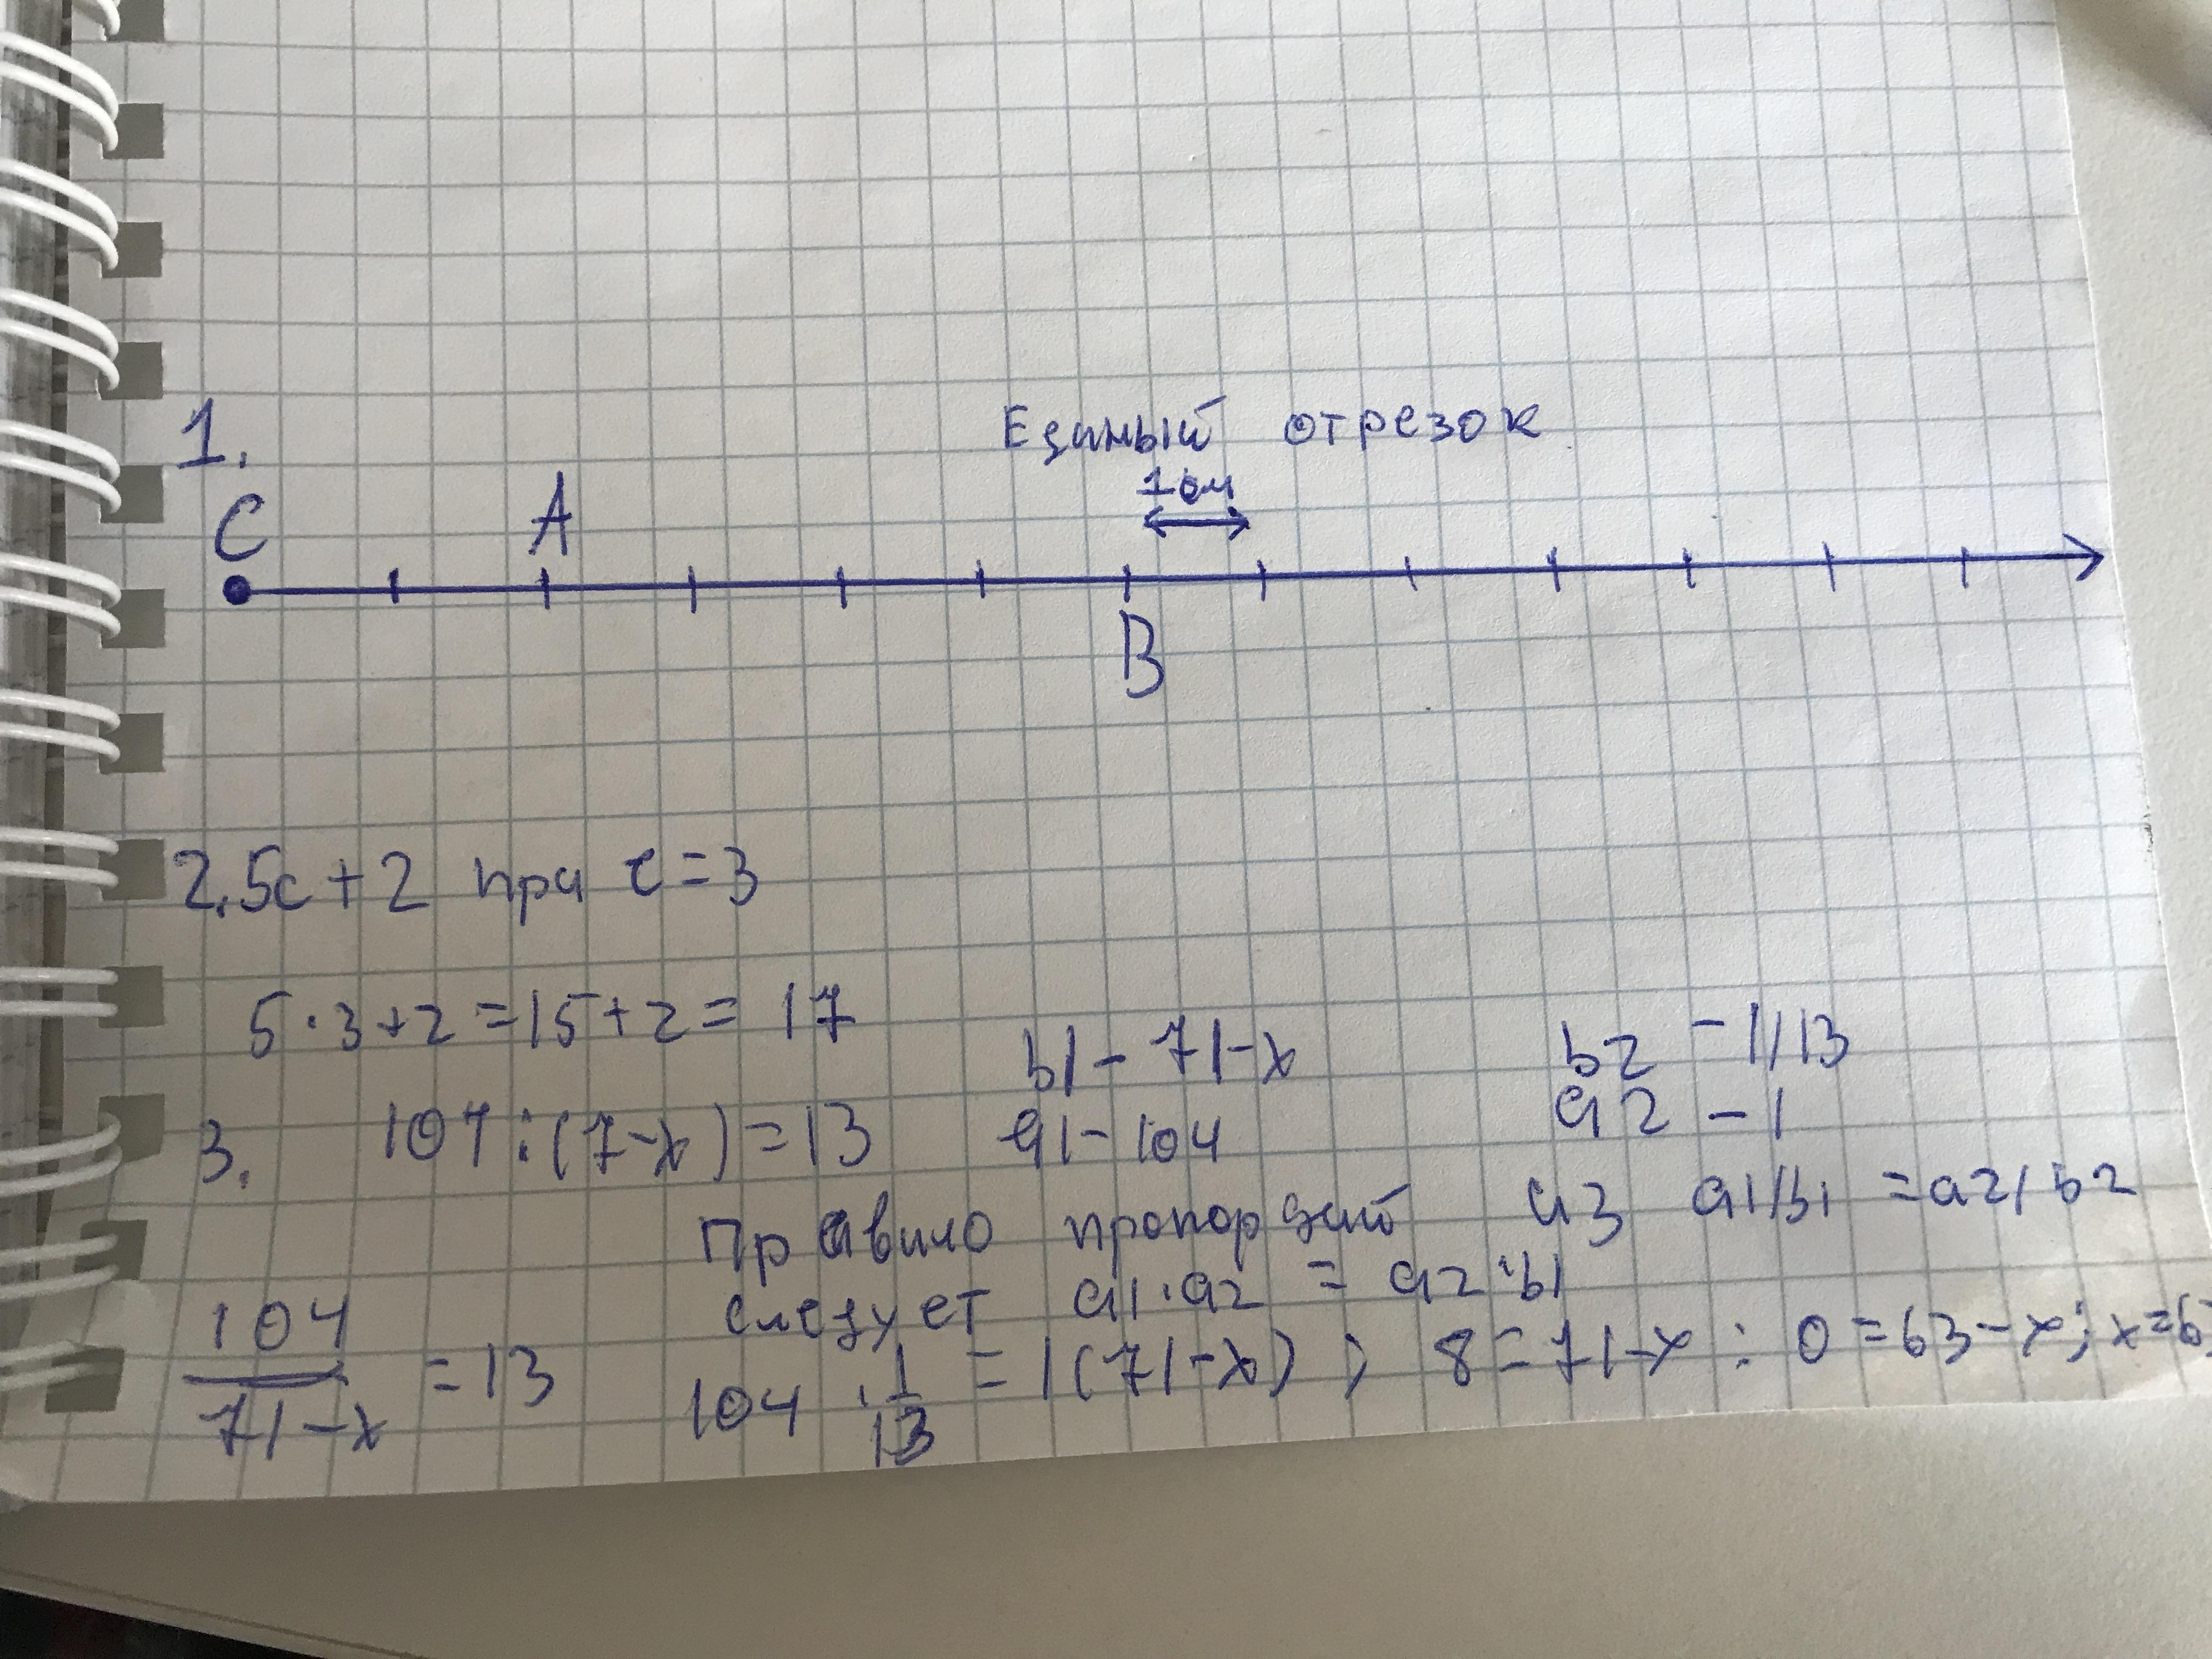 1.
Единый отрезок
1 см
C A
B
2. 5c + 2 при c = 3
5 · 3 + 2 = 15 + 2 = 17
b1 - 71-x b2 - 1/13
3. 104 : (7-x) = 13 a1 - 104 a2 - 1
Правило пропорций из a1/b1 = a2/b2
следует a1 · a2 = a2 · b1
104/71-x = 13 104 · 1/13 = 1(71-x) ; 8 = 71-x : 0 = 63-x; x = 6